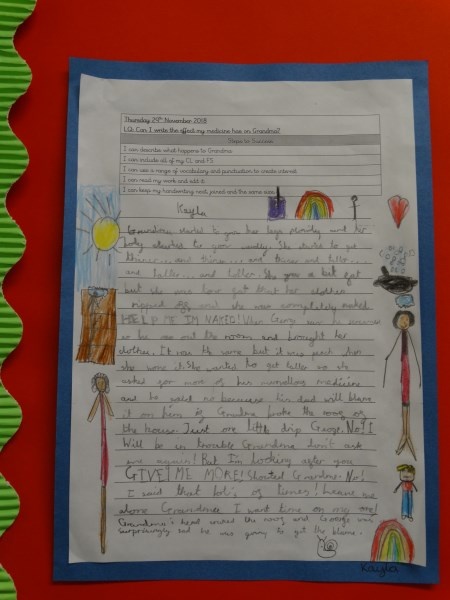 Thursday 29th November 2018
LQ: Can I write the effect my medicine has on Grandma?
Steps to Success
I can describe what happens to Grandma
I can include all of my CL and FS
I can use a range of vocabulary and punctuation to create interest
I can read my work and edit it
I can keep my handwriting neat, joined and the same size
Kayla
Grandmas started to her legs and her
body started to She started to get
thinner...and thinner... and thinner and taller...
and taller... and taller. She a bit fat
but she was that her clothes
ripped off and she was completely naked.
HELP ME IM NAKED! When George
to be out the room and brought her
clothes. It was the same but it was when
she wore it. She wanted to get taller so she
asked for more of his marvellous medicine
and he said no because his dad will blame
it on him if Grandma broke the roof of
the house. Just one little drip George. No! I
Will be in trouble Grandma don't ask
me again! But I'm looking after you
GIVE ME MORE! Shouted Grandma. No!
I said that lot's of times! leave me
alone Grandma I want time on my own!
Grandma's head the roof and George was
surprisingly sad he was going to get the blame.
Kayla